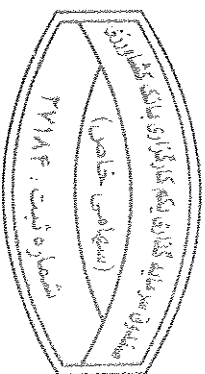 صندوق سرمایه گذاری یکم کارگزاری بانک کشاورزی
(سهامی خاص)
شماره ثبت : ۳۷۱۸۳